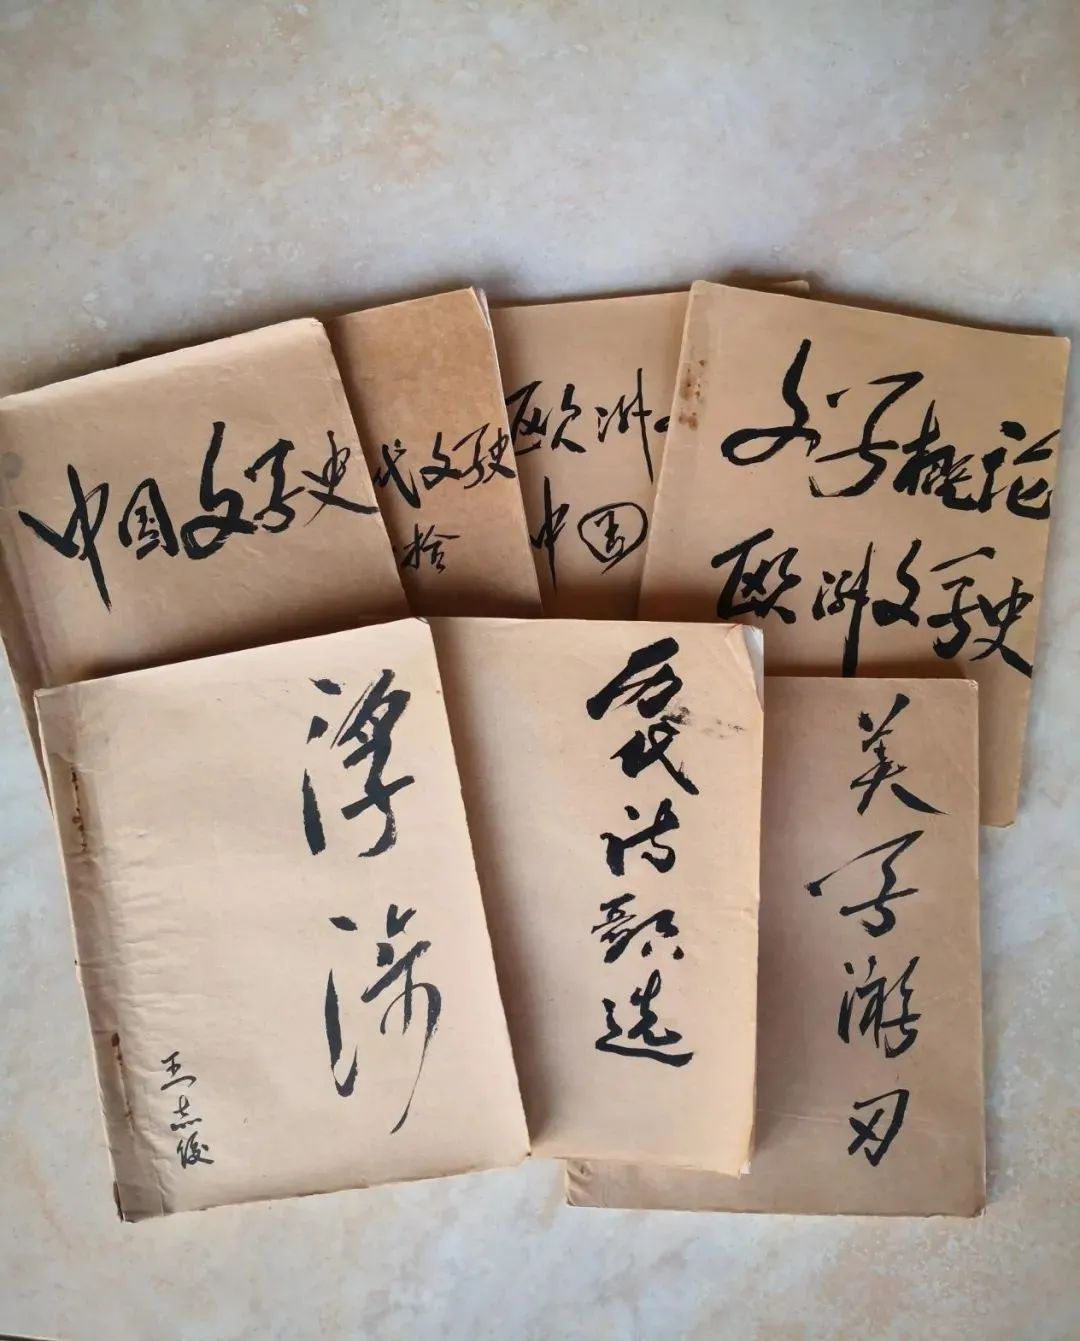 中国文学史
代文学史
拾
欧洲
中国
文学概论
欧洲文学史
浮
王志俊
历代诗歌选
美学游刃